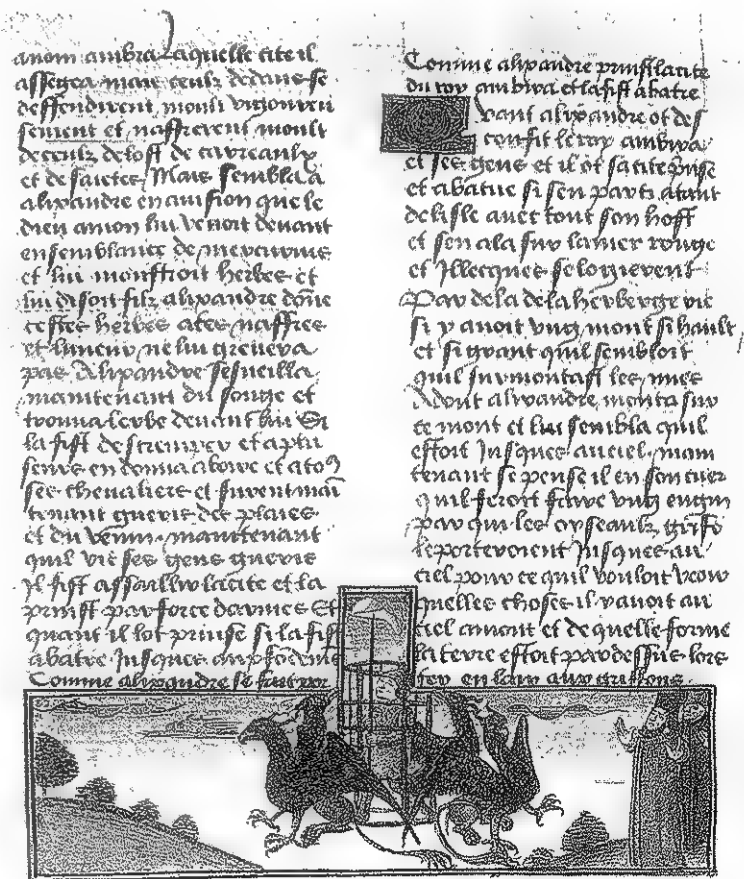 anom ambira laquelle cite il
assegea mais ceulx dedans se
deffendirent moult vigoureu
sement et naffrerent moult
de ceulx de lost de carreaulx
et de saietes Mais sembla a
alixandre en avision que le
dieu amon lui venoit devant
en semblance de mercurius
et lui monstroit herbes et
lui disoit filz alixandre dōne
cestes herbes a tes naffres
et ne lui grevera
pas Alixandre sesveilla
maintenant du songe et
trouva lerbe devant lui Si
la fist destremper et aplu
seurs en donna aboire et a toꝰ
ses chevaliers et furent mai
tenant gueris des plaies
et du venim maintenant
quil vit ses gens gueris
Il fist assaillir la cite et la
prinst par force darmes Et
quant il lot prinse si la fist
abatre Jusques
Comme alixandre se faist
Comme alixandre prinst la cite
du roy ambira et la fist abatre
vant alixandre ot des
confit le roy ambira
et ses gens et il ot sa cite prise
et abatue si sen parti atant
de lisle avec tout son host
et sen ala sur la mer rouge
et Illecques se logierent
Par dela de la herberge
si y avoit ung mont si hault
et si grant quil sembloit
quil surmontast les nues
Adont alixandre monta sur
ce mont et lui sembla quil
estoit Jusques au ciel main
tenant se pensa il en son cuer
quil feroit faire ung engin
par qui les oyseaulx grifo
le porteroient Jusques au
ciel pour ce quil vouloit veoir
quelles choses il y avoit au
ciel amont et de quelle forme
la terre estoit par dessus lors
en lair aux griffons